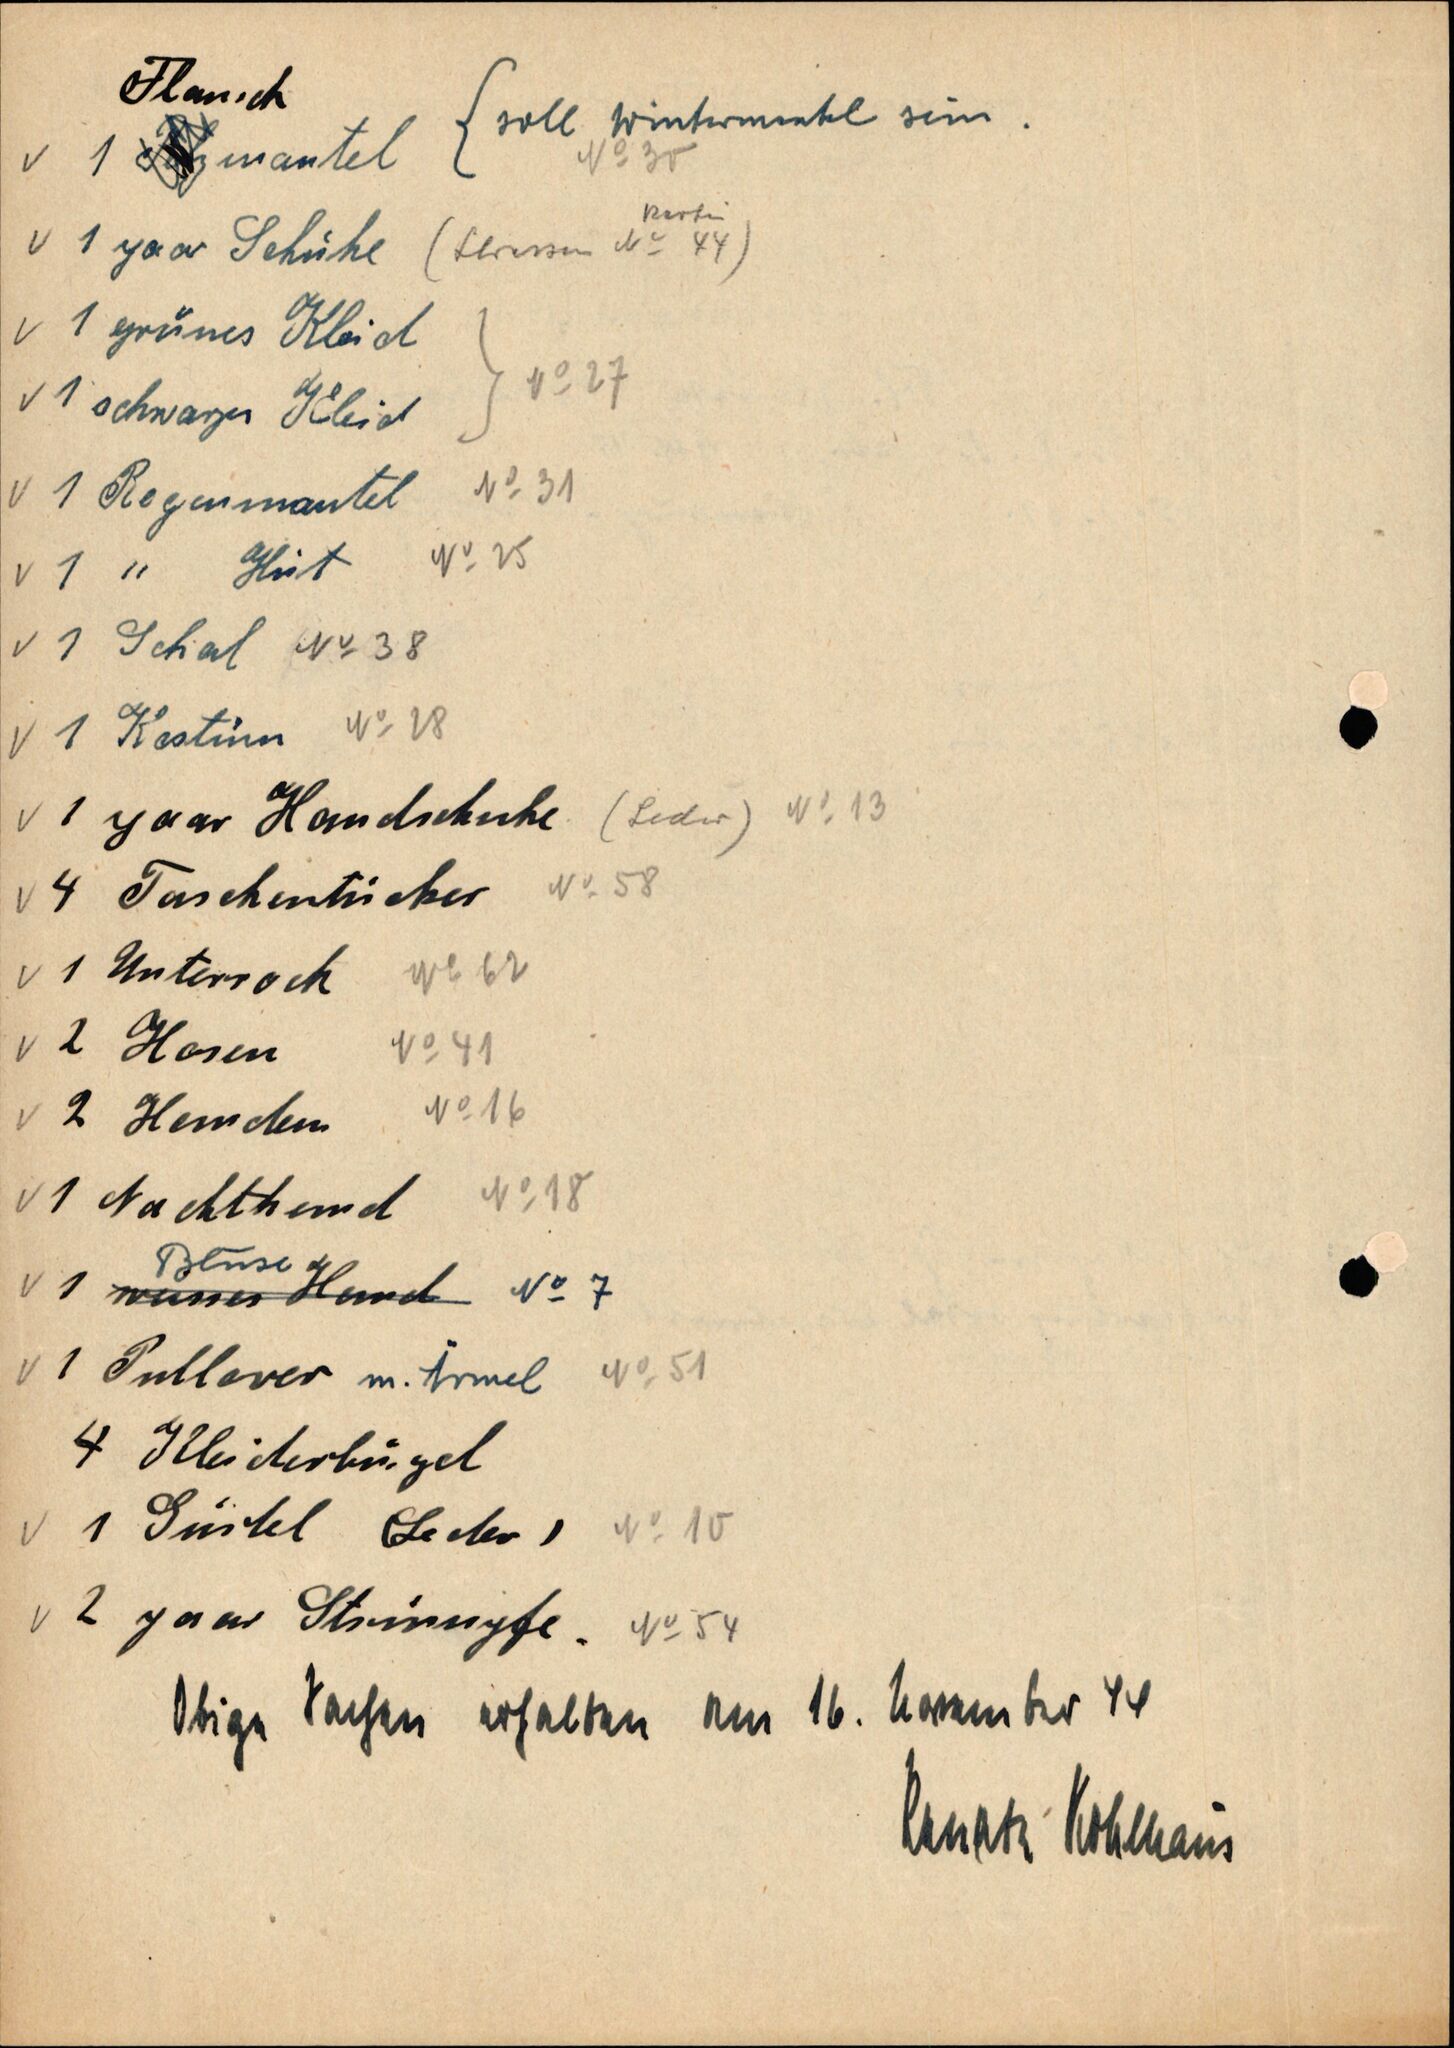 Flausch
v 1 mantel { soll Wintermantel sein.
No 30
v 1 paar Schuhe ( No 44)
v 1 grünes Kleid
} No 27
v 1 schwarzes Kleid
v 1 Regenmantel No 31
v 1 " Hut No 25
v 1 Schal No 38
v 1 Kostüm No 28
v 1 paar Handschuhe (Leder) No 13
v 4 Taschentücher No 58
v 1 Unterrock No 62
v 2 Hosen No 41
v 2 Hemden No 16
v 1 Nachthemd No 18
Bluse
v 1 weisses Hemd No 7
v 1 Pullover m. Ärmel No 51
4 Kleiderbügel
v 1 Gürtel (Leder) No 10
v 2 paar Strümpfe. No 54
Obige Sachen erhalten am 16. November 44
Renate Kohlhaus